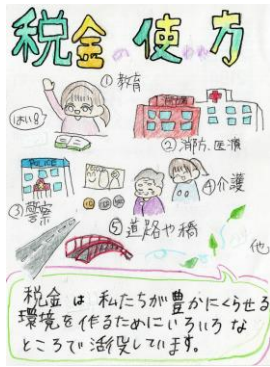 税金の使われ方
①教育
はい！
②消防、医療
POLICE
③警察
④介護
⑤道路や橋
他
税金は私たちが豊かにくらせる
環境を作るためにいろいろな
ところで活役しています。